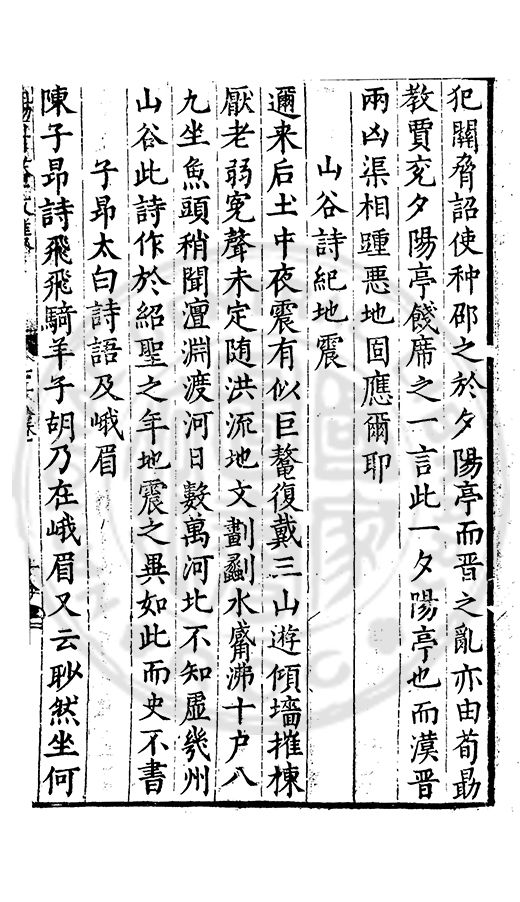 犯闕脅詔使种卲之於夕陽亭而晋之亂亦由荀勗
教賈充夕陽亭餞席之一言此一夕陽亭也而漢晋
兩凶渠相踵悪地固應爾耶
山谷詩紀地震
邇来后土中夜震有似巨鳌復戴三山遊傾墻摧棟
厭老弱寃聲未定随洪流地文劃劙水觱沸十户八
九坐魚頭稍聞澶淵渡河日數萬河北不知虚幾州
山谷此詩作於紹聖之年地震之異如此而史不書
子昂太白詩語及峨眉
陳子昂詩飛飛騎羊子胡乃在峨眉又云眇然坐何